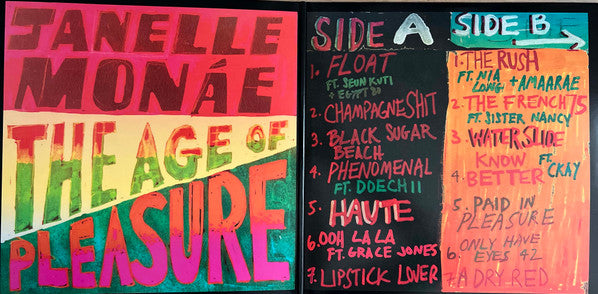 JANELLE
MONÁE
THE AGE OF
PLEASURE
SIDE A
1. FLOAT
FT. SEUN KUTI
+ EGYPT 80
2. CHAMPAGNE SHIT
3. BLACK SUGAR
BEACH
4. PHENOMENAL
FT. DOECHII
5. HAUTE
6. OOH LA LA
FT. GRACE JONES
7. LIPSTICK LOVER
SIDE B
1. THE RUSH
FT. NIA
LONG + AMAARAE
2. THE FRENCH 75
FT. SISTER NANCY
3. WATERSLIDE
4. KNOW
BETTER FT.
CKAY
5. PAID IN
PLEASURE
6. ONLY HAVE
EYES 42
7. A DRY RED